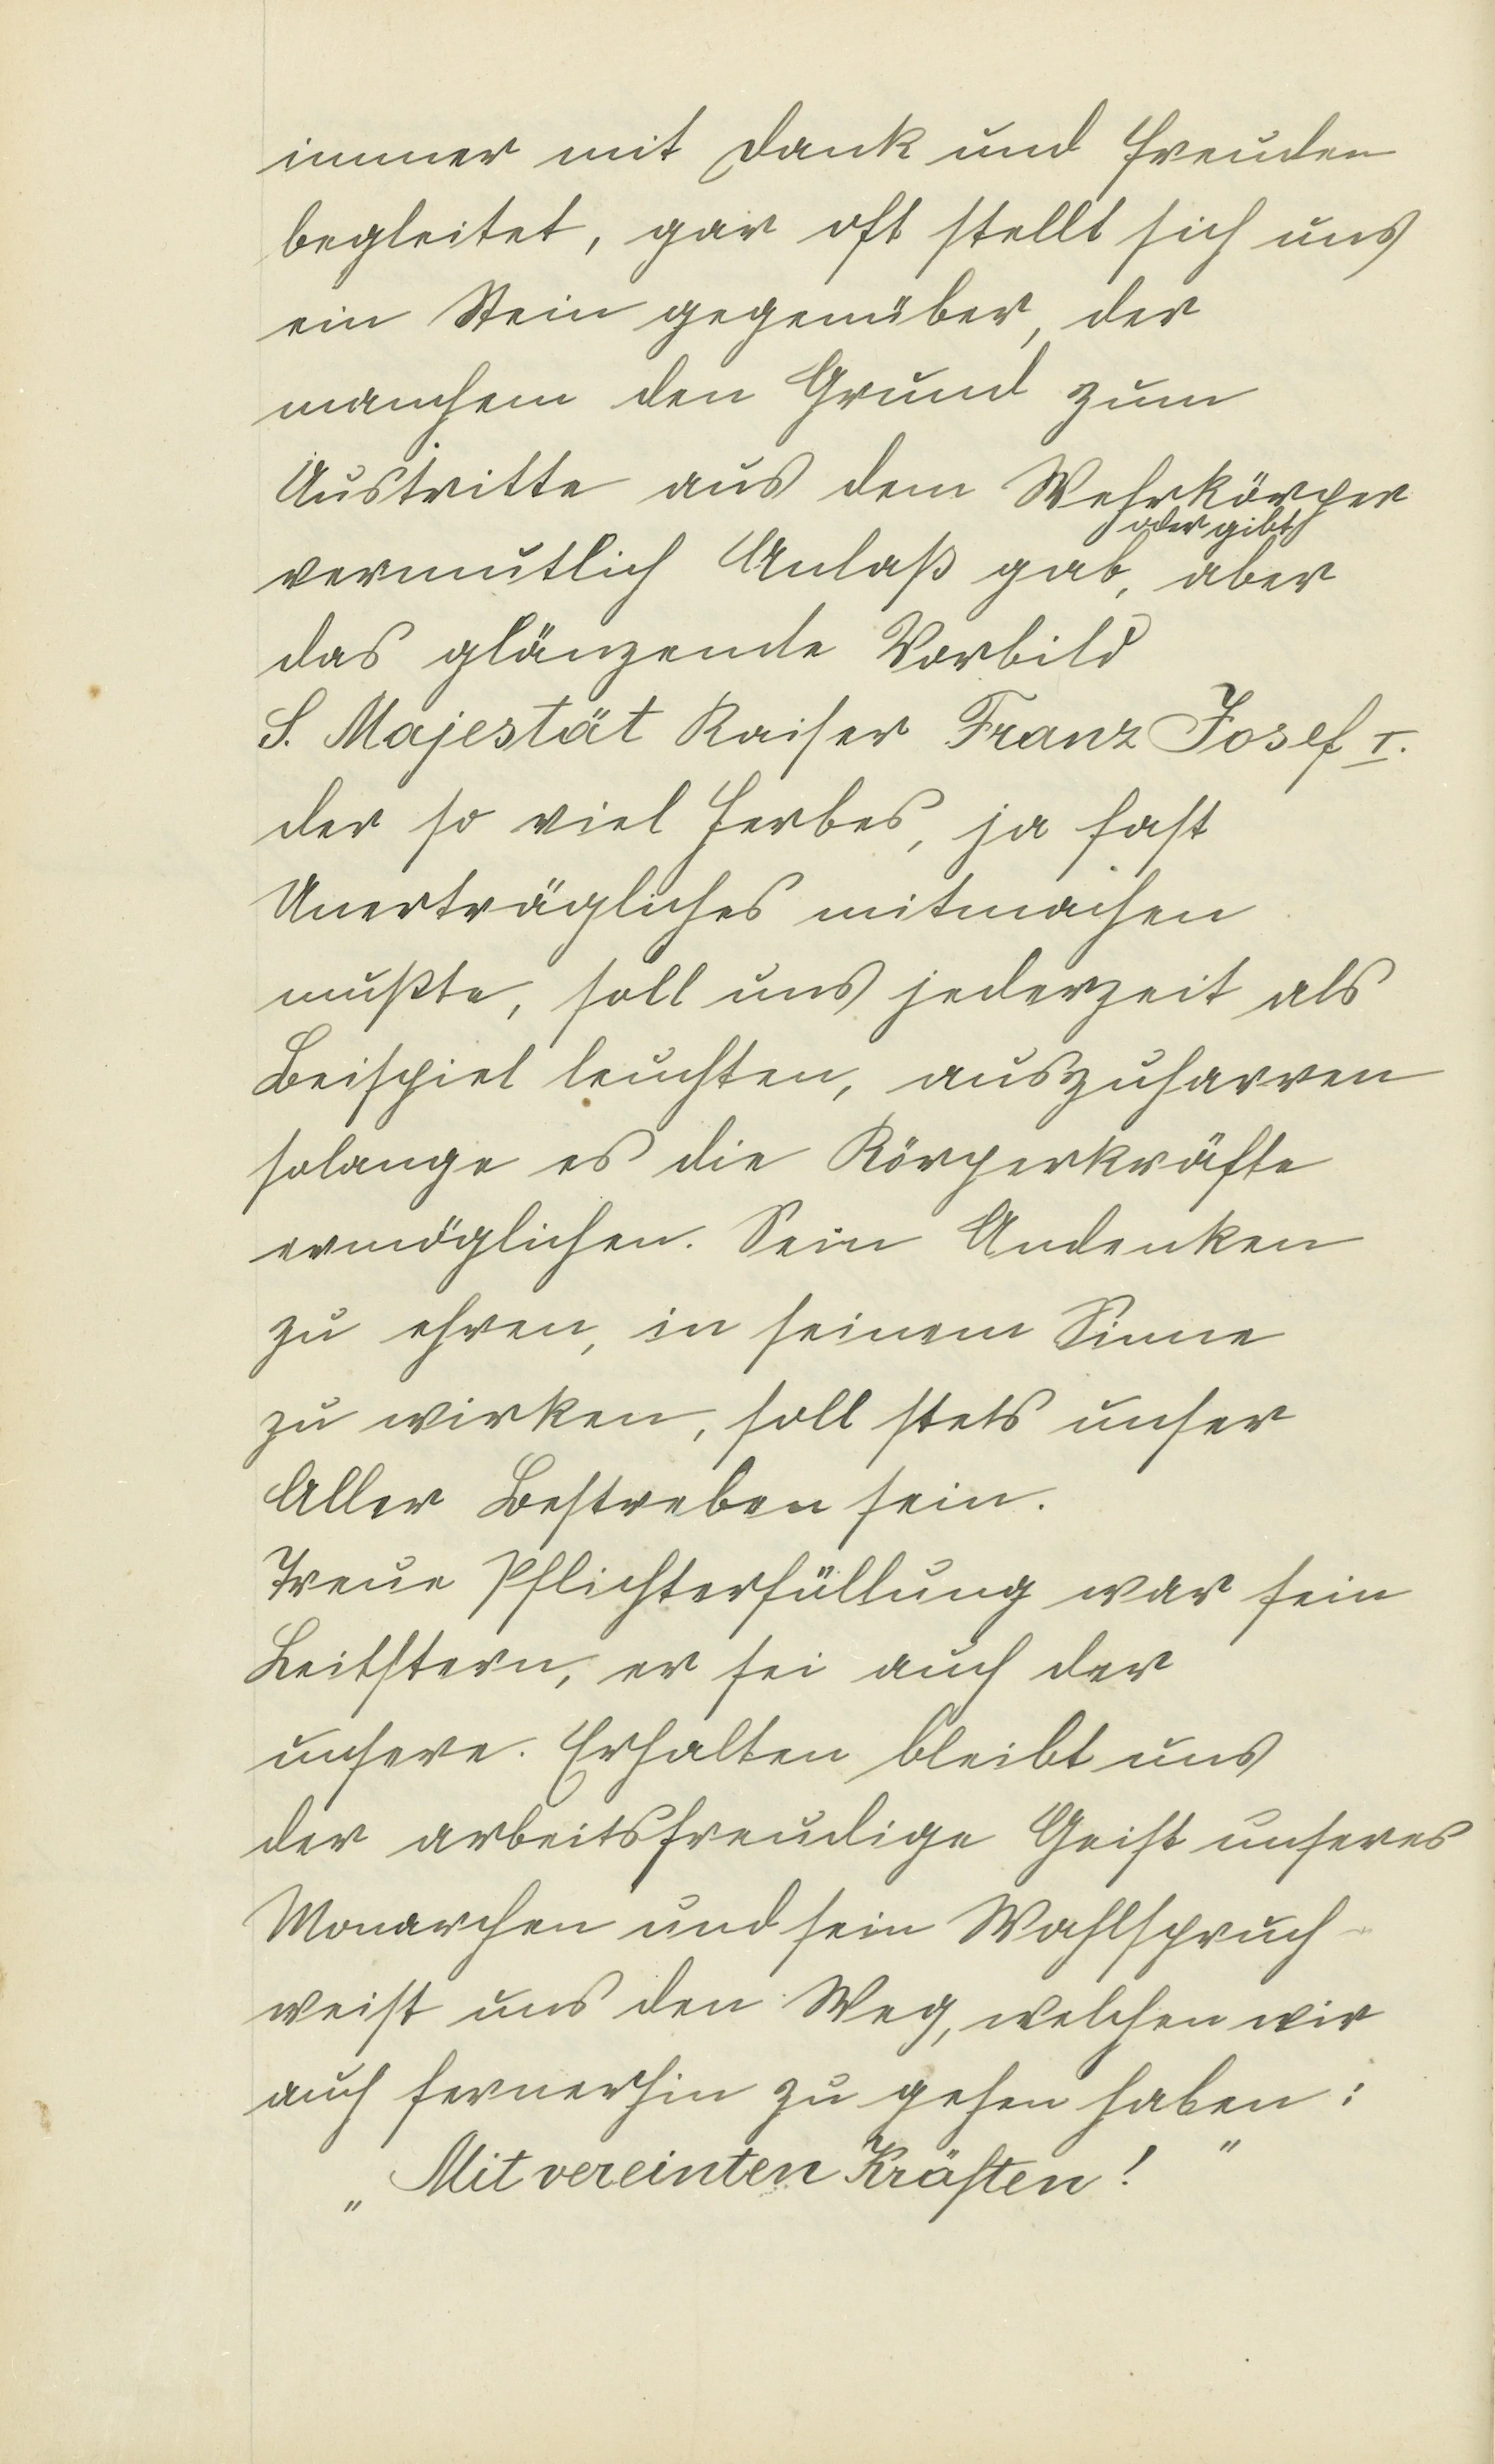 immer mit Dank und Freuden
begleitet, gar oft stellt sich uns
ein Stein gegenüber, der
manchem den Grund zum
Austritte aus dem Wehrkörper
oder gibt
vermutlich Anlaß gab, aber
das glänzende Vorbild
S. Majestät Kaiser Franz Josef I.
der so viel Herbes, ja fast
Unerträgliches mitmachen
mußte, soll uns jederzeit als
Beispiel leuchten, auszuharren
solange es die Körperkräfte
ermöglichen. Sein Andenken
zu ehren, in seinem Sinne
zu wirken, soll stets unser
Aller Bestreben sein.
Treue Pflichterfüllung war sein
Leitstern, er sei auch der
unsere. Erhalten bleibt uns
der arbeitsfreudige Geist unseres
Monarchen und sein Wahlspruch
weist uns den Weg, welchen wir
auch fernerhin zu gehen haben:
„Mit vereinten Kräften!"